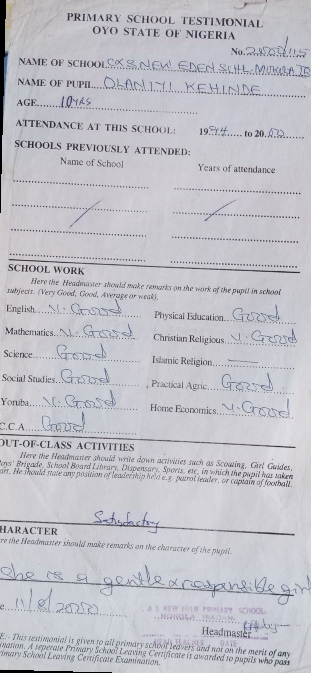 PRIMARY SCHOOL TESTIMONIAL
OYO STATE OF NIGERIA
No.
NAME OF SCHOOL C&S NEW EDEN SCHL. MOKOLA IB
NAME OF PUPIL OLANIYI KEHINDE
AGE 10YRS
ATTENDANCE AT THIS SCHOOL: 1994 to 20
SCHOOLS PREVIOUSLY ATTENDED:
Name of School Years of attendance
SCHOOL WORK
Here the Headmaster should make remarks on the work of the pupil in school
subjects. (Very Good, Good, Average or weak).
English V. Good Physical Education Good
Mathematics V. Good Christian Religious V. Good
Science Good Islamic Religion —
Social Studies Good Practical Agric Good
Yoruba V. Good Home Economics V. Good
C.C.A. Good
OUT-OF-CLASS ACTIVITIES
Here the Headmaster should write down activities such as Scouting, Girl Guides,
oys' Brigade, School Board Library, Dispensary, Sports, etc, in which the pupil has taken
art. He should state any position of leadership held e.g. patrol leader, or captain of football.
Satisfactory
HARACTER
re the Headmaster should make remarks on the character of the pupil.
She is a gentle & responsible girl
e 11/8/2000
NEW EDEN PRIMARY SCHOOL
MOKOLA IBADAN
Headmaster
HEAD TEACHER DATE
E:- This testimonial is given to all primary school leavers and not on the merit of any
ination. A seperate Primary School Leaving Certificate is awarded to pupils who pass
rimary School Leaving Certificate Examination.